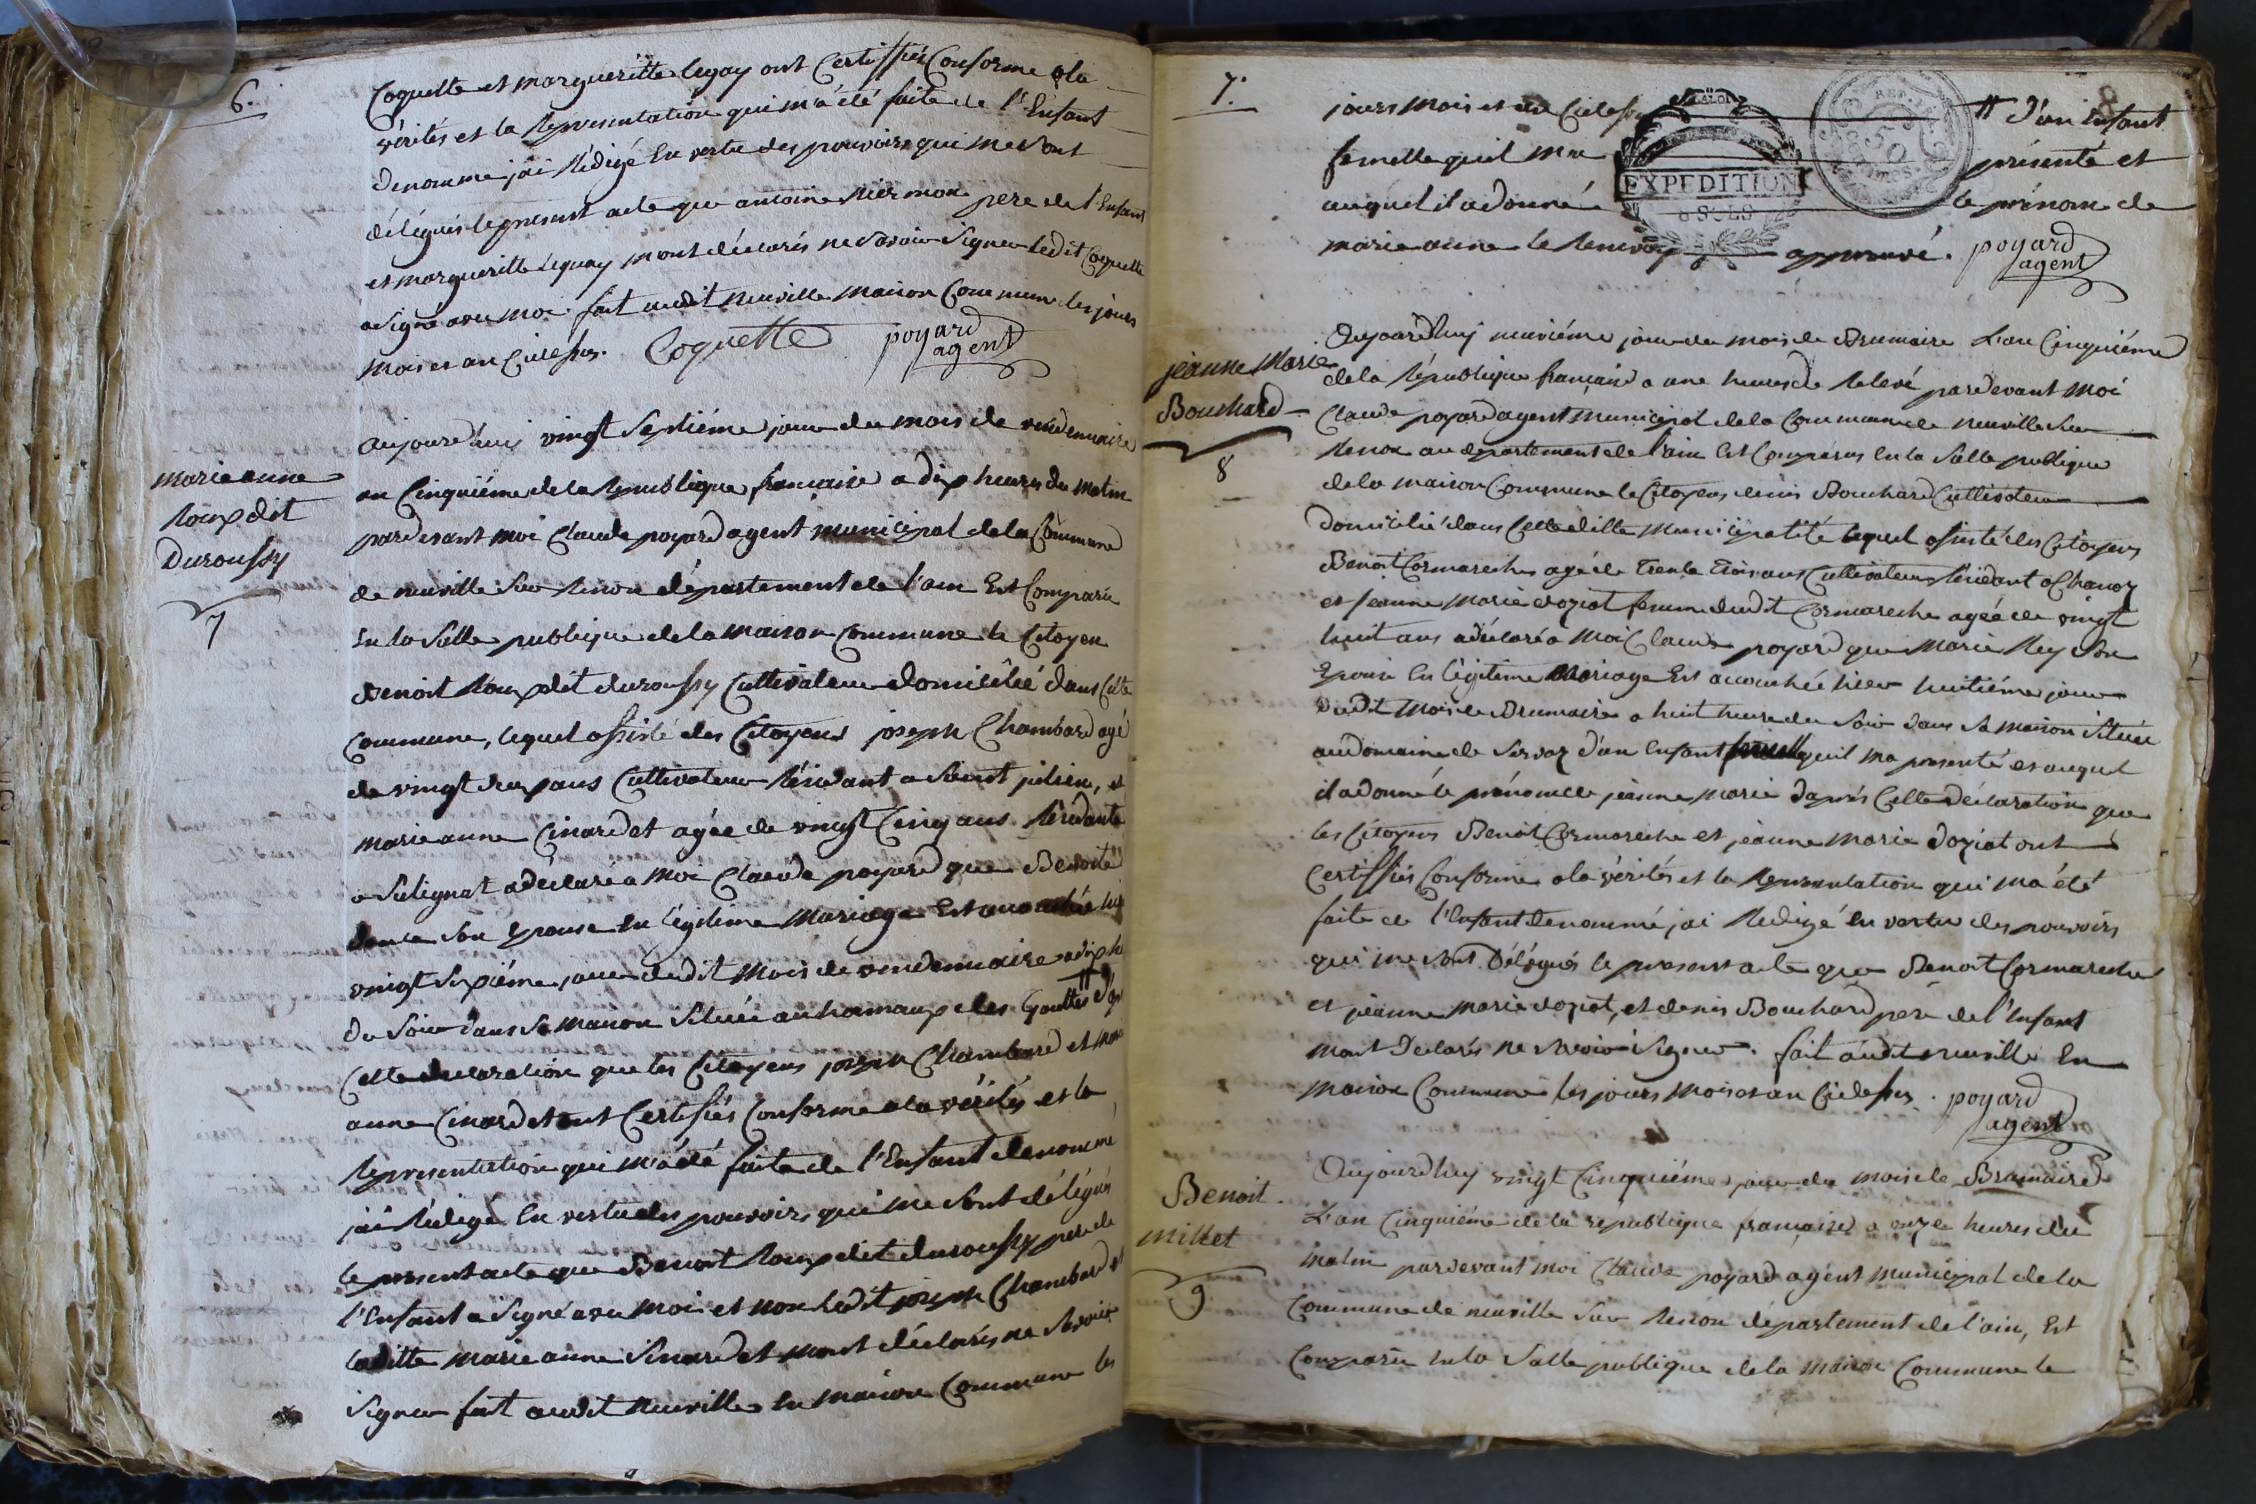 6.
Coquette et margueritte leguay ont Certiffiés Conforme a la
vérités et la Représentation qui m'a été faite de l'Enfant
denommé jai Rédigé En vertu des pouvoirs qui me sont
délégués le présent acte que antoine pere de l'Enfant
et margueritte leguay mont déclarés ne savoir signer ledit Coquette
a signé avec moi. fait audit neuville maison Commune les jours
mois et an Cidessus. Coquette poyard
agent
marie anne
Roux dit
Duroussy
7
aujourd'huis vingt septiéme jour du mois de vendemiaire
an Cinquiéme de la République française a dix heures du matin
pardevant moi Claude poyard agent municipal de la Commune
de neuville sur Renon département de l'ain Est Comparu
En la salle publique de la maison Commune le Citoyen
Benoit Roux dit duroussy Cultivateur domicilié dans Cette
Commune, lequel assisté des Citoyens joseph Chambard agé
de vingt deux ans Cultivateur Résidant a saint julien, et
marie anne Cinardet agée de vingt Cinq ans Résidante
a Sulignat a déclaré a moi Claude poyard que Benoite
son Epouse En légitime Mariage Est accouchée hier
vingt sixiéme jour dudit mois de vendemiaire a dix h
du soir dans sa maison située au hamaux des Gouttes
Cette declaration que les Citoyens joseph Chambard et marie
anne Cinardet ont Certifiés Conforme a la vérités et la
Représentation qui m'a été faite de l'Enfant denommé
jai Redigé En vertu des pouvoirs qui me sont délégués
le présent acte que Benoit Roux dit duroussy pere de
l'Enfant a signé avec moi et non ledit joseph Chambard et
laditte marie anne Sinardet mont déclarés ne savoir
signer fait audit neuville En maison Commune les
7.
jours mois et an Cidessus # d'un Enfant
femelle quil ma présenté et
auquel il a donné le prénom de
marie anne le Renvoy approuvé. poyard
agent
EXPEDITION
jeanne Marie
Bouchard
8
Aujourd'huy neuviéme jour du mois de Brumaire L'an Cinquiéme
de la République française a une heures de Relevé pardevant moi
Claude poyard agent municipal de la Commune de neuville sur
Renon au département de l'ain Est Comparus En la salle publique
de la maison Commune le Citoyens denis Bouchard Cultivateur
domicilié dans Cette ditte municipalité lequel assisté des Citoyens
Benoit Cormareche agé de trente trois ans Cultivateur Résidant a Chanoz
et jeanne Marie doziat femme dudit Cormareche agée de vingt
huit ans a déclaré a moi Claude poyard que Marie Rey son
Epouse En légitime Mariage Est accouchée hier huitiéme jour
dudit mois de Brumaire a huit heure du soir dans sa maison située
au domaine de Servaz d'un Enfant femelle quil ma presenté et auquel
il a donné le prénom de jeanne marie daprès Cette déclaration que
les Citoyens Benoit Cormareche et jeanne Marie doziat ont
Certiffiés Conforme a la vérités et la Représentation qui ma été
faite de l'Enfant denommé jai Redigé En vertu des pouvoirs
qui me sont délégués le present acte que Benoit Cormareche
et jeanne marie doziat, et denis Bouchard pere de l'Enfant
mont déclarés ne savoir signer. fait audit neuville En
maison Commune les jours mois et an Cidessus. poyard
agent
Benoit
millet
9
Aujourd'huy vingt Cinquiéme jour du mois de Brumaire
L'an Cinquiéme de la république française a onze heures du
matin pardevant moi Claude poyard agent municipal de la
Commune de neuville sur Renon département de l'ain, Est
Comparu En la salle publique de la maison Commune le